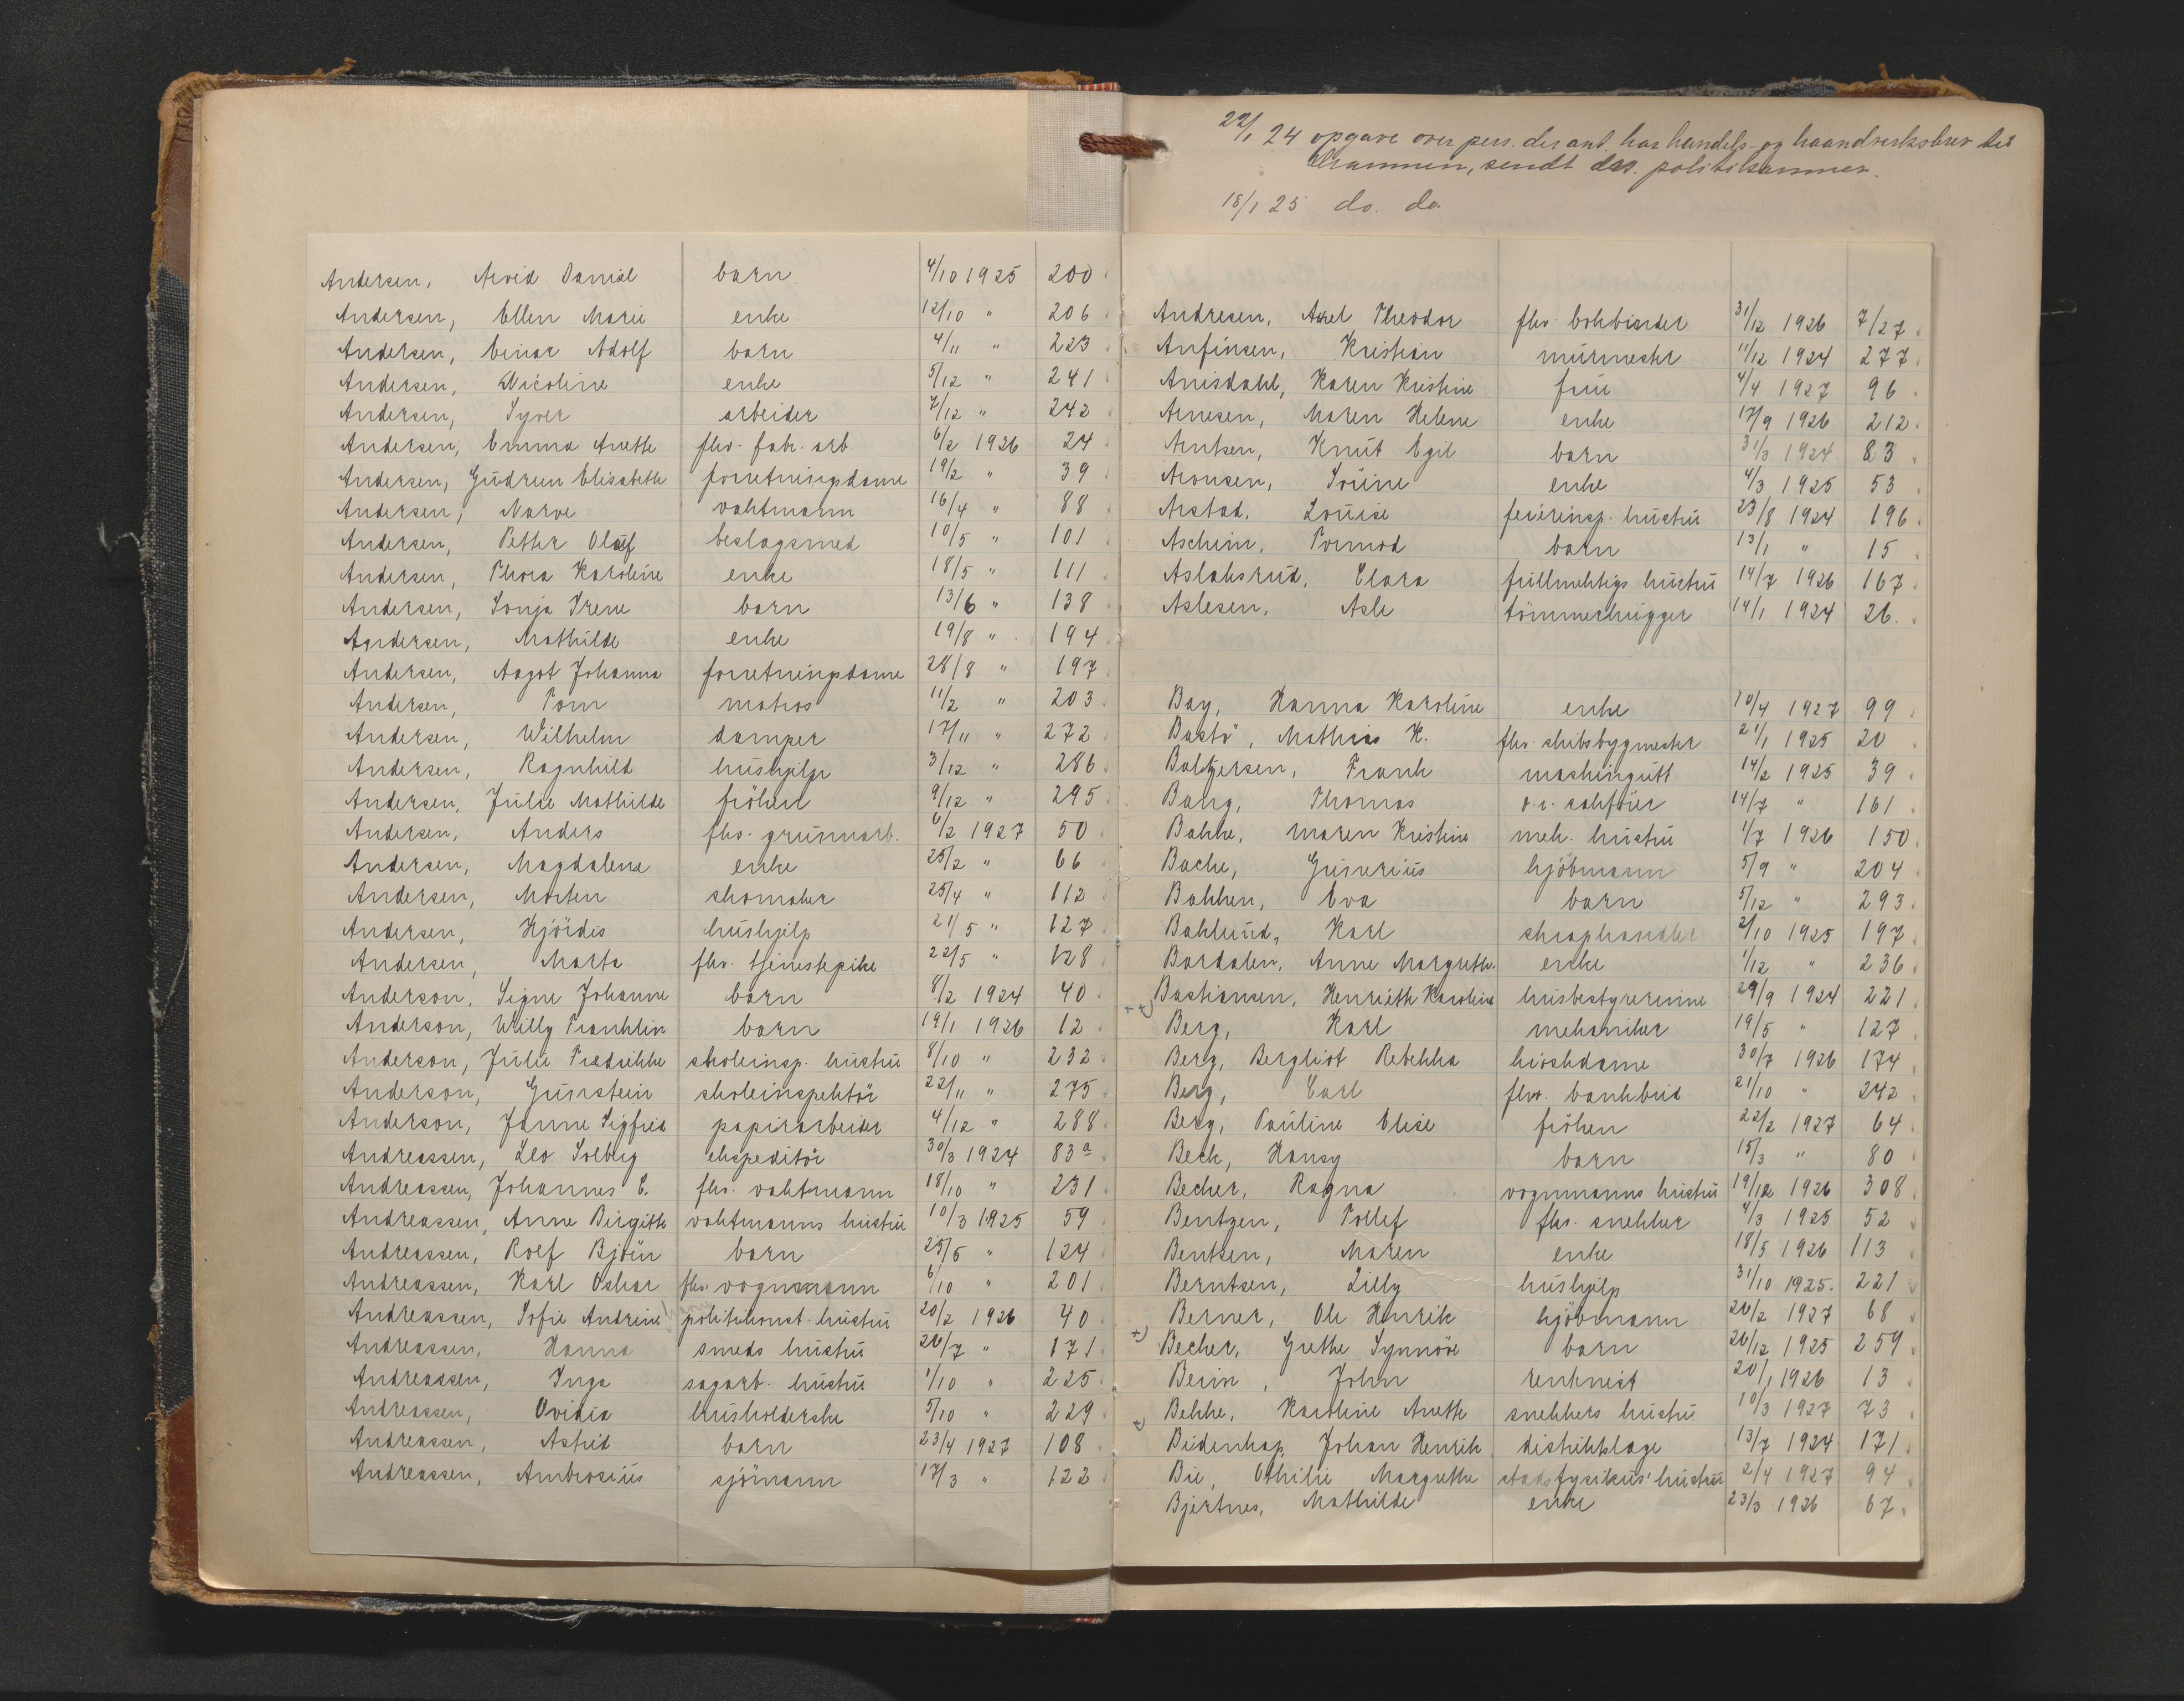 Andersen, Arvid Daniel barn 4/10 1925 200
Andersen, Ellen Marie enke 12/10 " 206
Andersen, Einar Adolf barn 4/11 " 223
Andersen, Nicoline enke 5/12 " 241
Andersen, Syver arbeider 7/12 " 242
Andersen, Emma Anette fhv. fabr. arb. 6/2 1926 24
Andersen, Gudrun Elisabeth forretningsdame 19/2 " 39
Andersen, Narve vaktmann 16/4 " 88
Andersen, Petter Oluf beslagsmed 10/5 " 101
Andersen, Thora Karoline enke 18/5 " 111
Andersen, Sonja Irene barn 13/6 " 138
Andersen, Mathilde enke 19/8 " 194
Andersen, Aagot Johanna forretningsdame 28/8 " 197
Andersen, Tom matros 11/2 " 203
Andersen, Wilhelm damper 17/11 " 272
Andersen, Ragnhild hushjelp 3/12 " 286
Andersen, Julie Mathilde fröken 9/12 " 295
Andersen, Anders fhv. grunnarb. 6/2 1927 50
Andersen, Magdalena enke 25/2 " 66
Andersen, Morten skomaker 25/4 " 112
Andersen, Hjördis hushjelp 21/5 " 127
Andersen, Marta fhv. tjenestepike 22/5 " 128
Anderson, Signe Johanne barn 8/2 1924 40
Anderson, Willy Franklin barn 19/1 1926 12
Anderson, Julie Fredrikke skoleinsp. hustru 8/10 " 232
Anderson, Gunstein skoleinspektör 22/11 " 275
Anderson, Janne Sigfrid papirarbeider 4/12 " 288
Andreassen, Leo Solberg ekspeditör 30/3 1924 83a
Andreassen, Johannes E. fhv. vaktmann 18/10 " 231
Andreassen, Anne Birgitte vaktmanns hustru 10/3 1925 59
Andreassen, Rolf Björn barn 25/5 " 124
Andreassen, Karl Oskar fhv. vognmann 6/10 " 201
Andreassen, Sofie Andrine politikonst. hustru 20/2 1926 40
Andreassen, Hanna smeds hustru 26/7 " 171
Andreassen, Inga sagarb. hustru 1/10 " 225
Andreassen, Ovidia husholderske 5/10 " 229
Andreassen, Astrid barn 23/4 1927 108
Andreassen, Ambrosius sjömann 17/3 " 122
22/1 24 opgave over pers. der ant. har handels- og haandverksbrev til
Drammen, sendt drs. politikammer.
18/1 25 do. do.
Andresen, Axel Theodor fhv. bokbinder 31/12 1926 7/27
Anfinsen, Kristian murmester 11/12 1924 277
Arnisdahl, Karen Kristine frue 4/4 1927 96
Arnesen, Maren Helene enke 17/9 1926 212
Arntsen, Knut Egil barn 31/3 1924 83
Aronsen, Lovine enke 4/3 1925 53
Arstad, Louise feierinsp. hustru 23/8 1924 196
Aschim, Tormod barn 13/1 " 15
Aslaksrud, Clara fullmektigs hustru 14/7 1926 167
Aslesen, Asle tömmerhugger 14/1 1924 26
Bay, Hanna Karoline enke 10/4 1927 99
Bastö, Mathias K. fhv. skibsbygmester 21/1 1925 20
Baltzersen, Frank maskingutt 14/2 1925 39
Bang, Thomas o.r. sakförer 14/7 " 161
Bakke, Maren Kristine mek. hustru 1/7 1926 150
Bache, Gunerius kjöbmann 5/9 " 204
Bakken, Eva barn 5/12 " 293
Baklund, Karl skraphandler 2/10 1925 197
Bardalen, Anne Margrethe enke 1/12 " 236
Bastiansen, Henriette Karoline husbestyrerinne 29/9 1924 221
Berg, Karl mekaniker 19/5 " 127
Berg, Bergliot Rebekka kioskdame 30/7 1926 174
Berg, Carl fhv. bankbud 21/10 " 242
Berg, Pauline Elise fröken 22/2 1927 64
Beck, Hansy barn 15/3 " 80
Becher, Ragna vognmanns hustru 19/12 1926 308
Bentzen, Tollef fhv. snekker 4/3 1925 52
Bentsen, Maren enke 18/5 1926 113
Berntsen, Lilly hushjelp 31/10 1925. 221
Berner, Ole Henrik kjöbmann 26/2 1927 68
Becher, Grethe Synnöve barn 26/12 1925 259
Berin, John rentnist 20/1 1926 13
Bekke, Karoline Anette snekkers hustru 10/3 1927 73
Bidenkap, Johan Henrik distriktslæge 13/7 1924 171
Bie, Othilie Margrethe stadsfysikus' hustru 2/4 1927 94
Bjertnes, Mathilde enke 23/3 1926 67